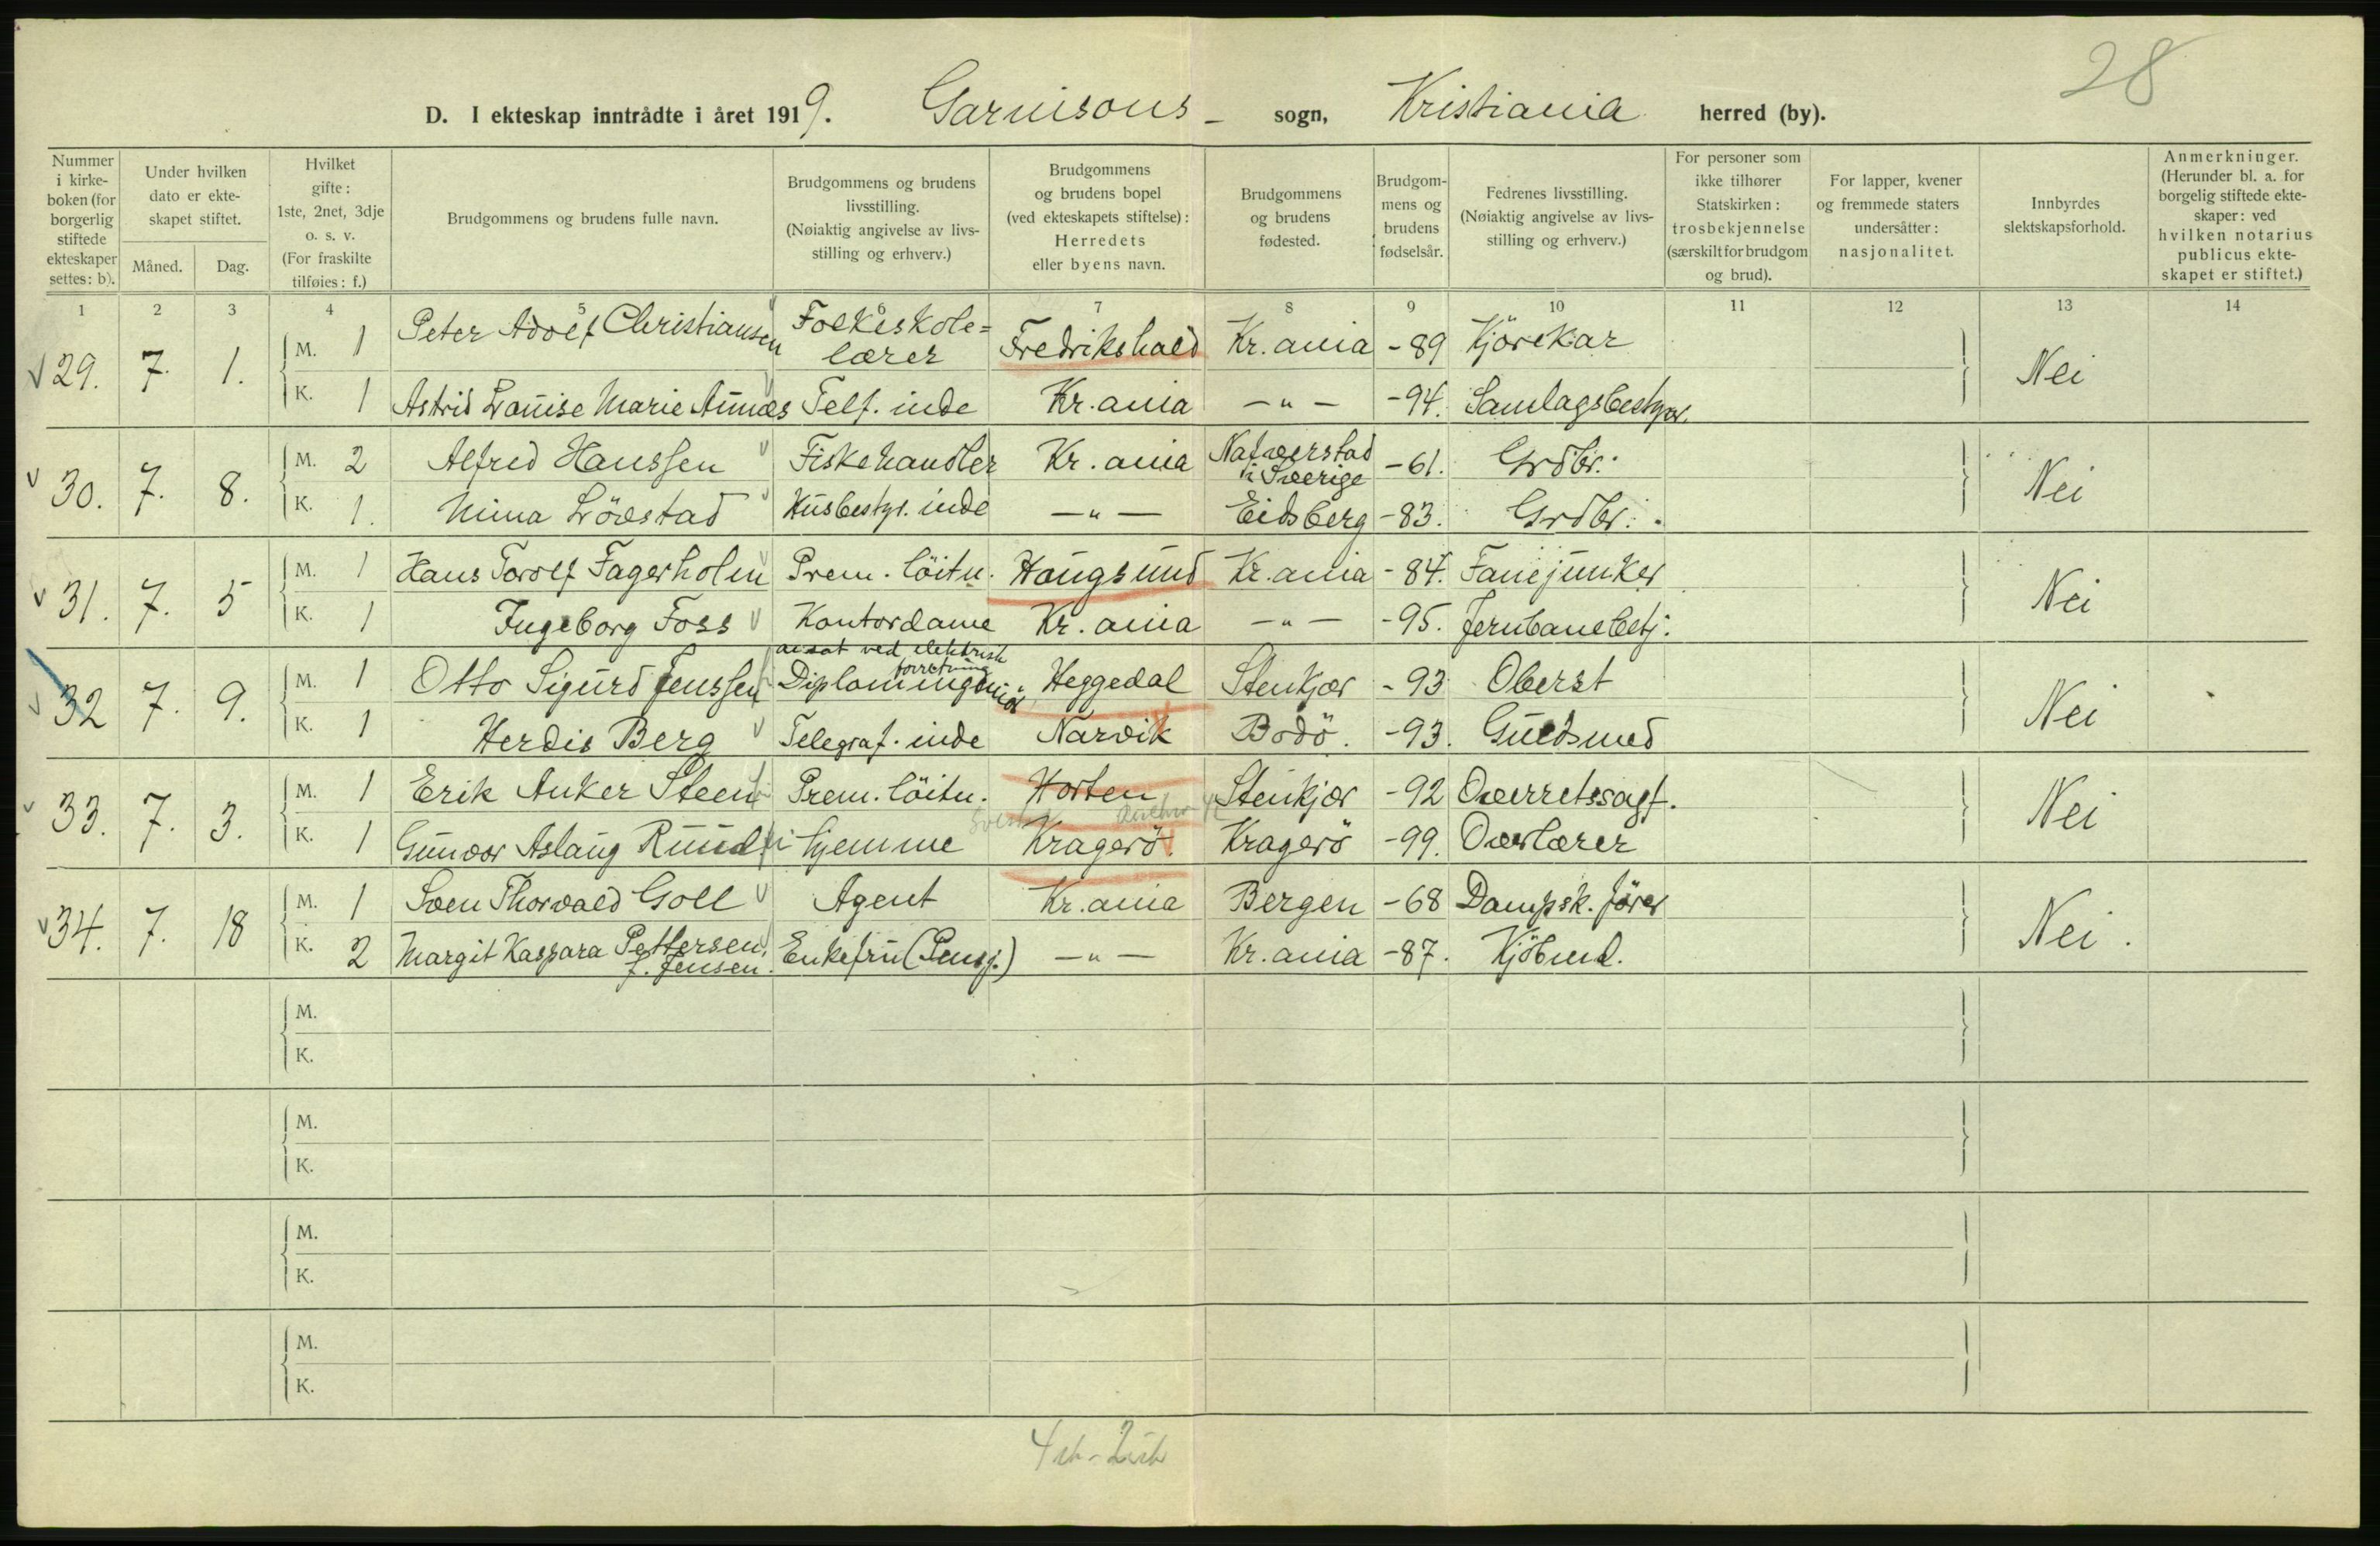 28
D. I ekteskap inntrådte i året 1919. Garnisons- sogn, Kristiania herred (by).
Nummer i kirkeboken (for borgerlig stiftede ekteskaper settes: b).
Under hvilken dato er ekteskapet stiftet.
Måned. Dag.
Hvilket gifte: 1ste, 2net, 3dje o. s. v. (For fraskilte tilføies: f.)
Brudgommens og brudens fulle navn.
Brudgommens og brudens livsstilling. (Nøiaktig angivelse av livsstilling og erhverv.)
Brudgommens og brudens bopel (ved ekteskapets stiftelse): Herredets eller byens navn.
Brudgommens og brudens fødested.
Brudgommens og brudens fødselsår.
Fedrenes livsstilling. (Nøiaktig angivelse av livsstilling og erhverv.)
For personer som ikke tilhører Statskirken: trosbekjennelse (særskilt for brudgom og brud).
For lapper, kvener og fremmede staters undersåtter: nasjonalitet.
Innbyrdes slektskapsforhold.
Anmerkninger. (Herunder bl. a. for borgelig stiftede ekteskaper: ved hvilken notarius publicus ekteskapet er stiftet.)
1 2 3 4 5 6 7 8 9 10 11 12 13 14
29. 7. 1. M. 1 Peter Adolf Christiansen Folkeskole=lærer Fredrikshald Kr.ania -89 Kjörekar Nei
K. 1 Astrid Louise Marie Aunæs Telf. inde Kr.ania -"- -94. Samlagsbestyrer.
30. 7. 8. M. 2 Alfred Hanssen Fiskehandler Kr.ania Natverstad i Sverige -61. Grdbr. Nei
K. 1. Mina Lövstad Husbestyr. inde -"- Eidsberg -83. Grdbr.
31. 7. 5 M. 1 Hans Torolf Fagerholm Prem. löitn. Haugsund Kr.ania -84. Fanejunker Nei
K. 1 Ingeborg Foss Kontordame Kr.ania -"- -95. Jernbanebetj.
32 7. 9. M. 1 Otto Sigurd Jenssen Diplomingeniör ansat ved elektrisk forretning Heggedal Stenkjær -93 Oberst Nei
K. 1 Herdis Berg Telegraf. inde Narvik Bodö. -93. Guldsmed
33. 7. 3. M. 1 Erik Anker Steen Prem. löitn. Horten Stenkjær -92 Overretssagf. Nei
K. 1 Gunvor Aslaug Ruud i hjemme Kragerö. Kragerö -99. Overlærer
34. 7. 18 M. 1 Sven Thorvald Goll Agent Kr.ania Bergen -68 Dampsk. förer Nei.
K. 2 Margit Kaspara Pettersen, f. Jensen. Enkefru (Pensj.) -"- Kr.ania -87. Kjöbmd.
M.
K.
M.
K.
M.
K.
M.
K.